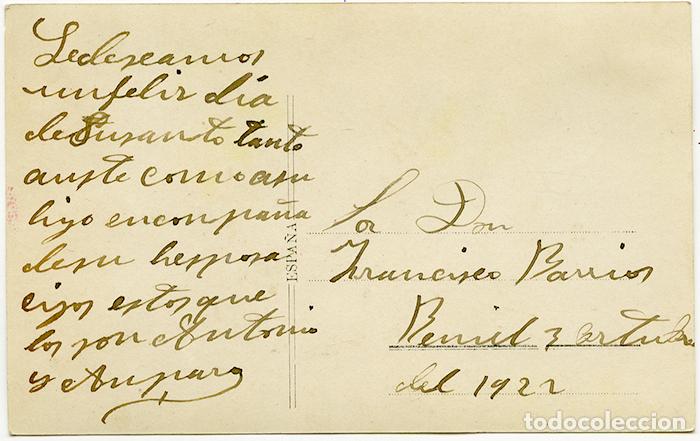 Ledeseamos
unfelir dia
de Susanto tanto
auste comoasu
hijo enconpaña
desu hesposa
eijos estos que
los son Antonio
y Anparo
ESPAÑA
Sor Don
Francisco Barrios
Beniel 3 octubre
del 1922
todocoleccion